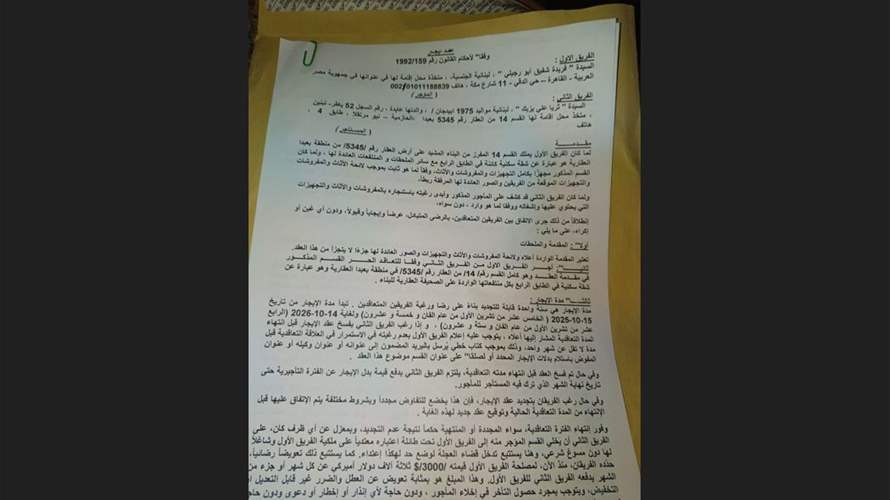 عقد ايجار
وفقاً لأحكام القانون رقم 1992/159
الفريق الاول :
السيدة " فريدة شفيق ابو رجيلي " ، لبنانية الجنسية، متخذة محل إقامة لها في عنوانها في جمهورية مصر
العربية - القاهرة – حي الدقي - 11 شارع مكة ، هاتف 01011188839/002
( المؤجر )
الفريق الثاني :
السيدة " ثريا علي يزبك " ، لبنانية مواليد 1975 ابيدجان / ، والدتها عايدة ، رقم السجل 52 يعطر- تبنين
، متخذ محل إقامة لها القسم 14 من العقار رقم 5345 بعبدا -الحازمية – نيو مارتقلا ، طابق 4 ،
هاتف
( المستأجر )
مقدمــة
لما كان الفريق الأول يمتلك القسم 14 المفرز من البناء المشيد على أرض العقار رقم /5345/ من منطقة بعبدا
العقارية هو عبارة عن شقة سكنية كائنة في الطابق الرابع مع سائر الملحقات و المنتفعات العائدة لها ، ولما كان
القسم المذكور مجهزاً بكامل التجهيزات والمفروشات والأثاث، وفقاً لما هو ثابت بموجب لائحة الأثاث والمفروشات
والتجهيزات الموقعة من الفريقين والصور العائدة لها المرفقة ربطاً.
ولما كان الفريق الثاني قد كشف على المأجور المذكور وأبدى رغبته باستئجاره بالمفروشات والأثاث والتجهيزات
التي يحتوي عليها وإشغالاته ووفقا لما هو وارد ، دون سواه.
إنطلاقاً من ذلك جرى الاتفاق بين الفريقين المتعاقدين، بالرضى المتبادل، عرضاً وإيجاباً وقبولاً، ودون أي غبن أو
إكراه، على ما يلي :
أولاً : المقدمة والملحقات
تعتبر المقدمة الواردة أعلاه ولائحة المفروشات والأثاث والتجهيزات والصور العائدة لها جزءاً لا يتجزأ من هذا العقد.
ثانياً : أجر الفريق الأول من الفريق الثاني وفقاً للتعاقد الحر القسم المذكور
في مقدمة العقد وهو كامل القسم رقم /14/ من العقار رقم /5345/ في منطقة بعبدا العقارية وهو عبارة عن
شقة سكنية في الطابق الرابع بكل منتفعاتها الواردة على الصحيفة العقارية للبناء .
ثالثاً : مدة الإيجار :
مدة الإيجار هي سنة واحدة قابلة للتجديد بناءً على رضا ورغبة الفريقين المتعاقدين . تبدأ مدة الإيجار من تاريخ
15-10-2025 ( الخامس عشر من تشرين الأول من عام الفان و خمسة و عشرون) ولغاية 14-10-2026 (الرابع
عشر من تشرين الأول من عام الفان و ستة و عشرون) ، و إذا رغب الفريق الثاني بفسخ عقد الإيجار قبل انتهاء
المدة التعاقدية المشار إليها أعلاه ، يتوجب عليه إعلام الفريق الأول بعدم رغبته في الاستمرار في العلاقة التعاقدية قبل
مدة لا تقل عن شهر واحد، وذلك بموجب كتاب خطي يُرسل بالبريد المضمون إلى عنوانه أو عنوان وكيله أو عنوان
المفوض باستلام بدلات الإيجار المحدد أو لصقاً على عنوان القسم موضوع هذا العقد .
وفي حال تم فسخ العقد قبل انتهاء مدته التعاقدية، يلتزم الفريق الثاني بدفع قيمة بدل الإيجار عن الفترة التأجيرية حتى
تاريخ نهاية الشهر الذي ترك فيه المستأجر للمأجور.
وفي حال رغب الفريقان بتجديد عقد الإيجار، فإن هذا يخضع للتفاوض مجدداً وبشروط مختلفة يتم الإتفاق عليها قبل
الإنتهاء من المدة التعاقدية الحالية وتوقيع عقد جديد لهذه الغاية .
وفور إنتهاء الفترة التعاقدية، سواء المجددة أو المنتهية حكماً نتيجة عدم التجديد، وبمعزل عن أي ظرف كان، على
الفريق الثاني أن يُخلي القسم المؤجر منه إلى الفريق الأول تحت طائلة اعتباره معتدياً على ملكية الفريق الأول وشاغلاً
لها دون مسوغ شرعي، وهنا يستتبع تدخل قضاء العجلة لوضع حد لهكذا إعتداء. كما يستتبع ذلك تعويضاً رضائياً،
حدده الفريقان، منذ الآن، لمصلحة الفريق الأول قيمته /3000$/ ثلاثة ألاف دولار أميركي عن كل شهر أو جزء من
الشهر يدفعه الفريق الثاني للفريق الأول. وهذا المبلغ هو بمثابة تعويض عن العطل والضرر غير قابل التعديل أ
التخفيض، ويتوجب بمجرد حصول التأخر في إخلاء المأجور ، ودون حاجة لأي إنذار أو إخطار أو دعوى ودون حاج